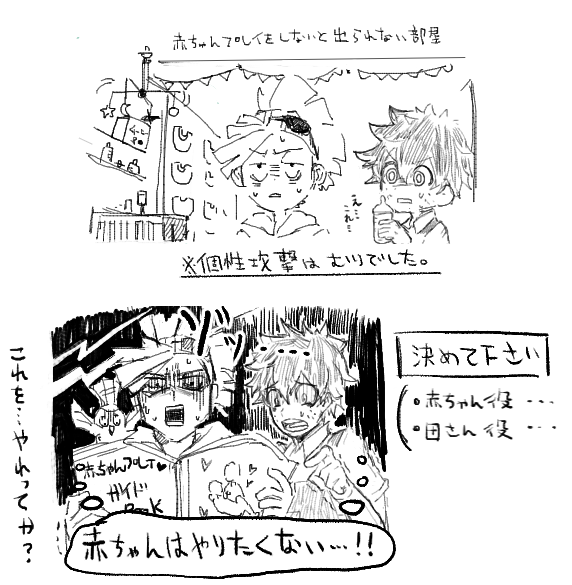 赤ちゃんプレイをしないと出られない部屋
え…
これ…
※個性攻撃はむりでした。
バッ
決めて下さい
・赤ちゃん役 …
・母さん役 …
これを…やれってか?
赤ちゃんプレイ♥
ガイド
Book
赤ちゃんはやりたくない…!!